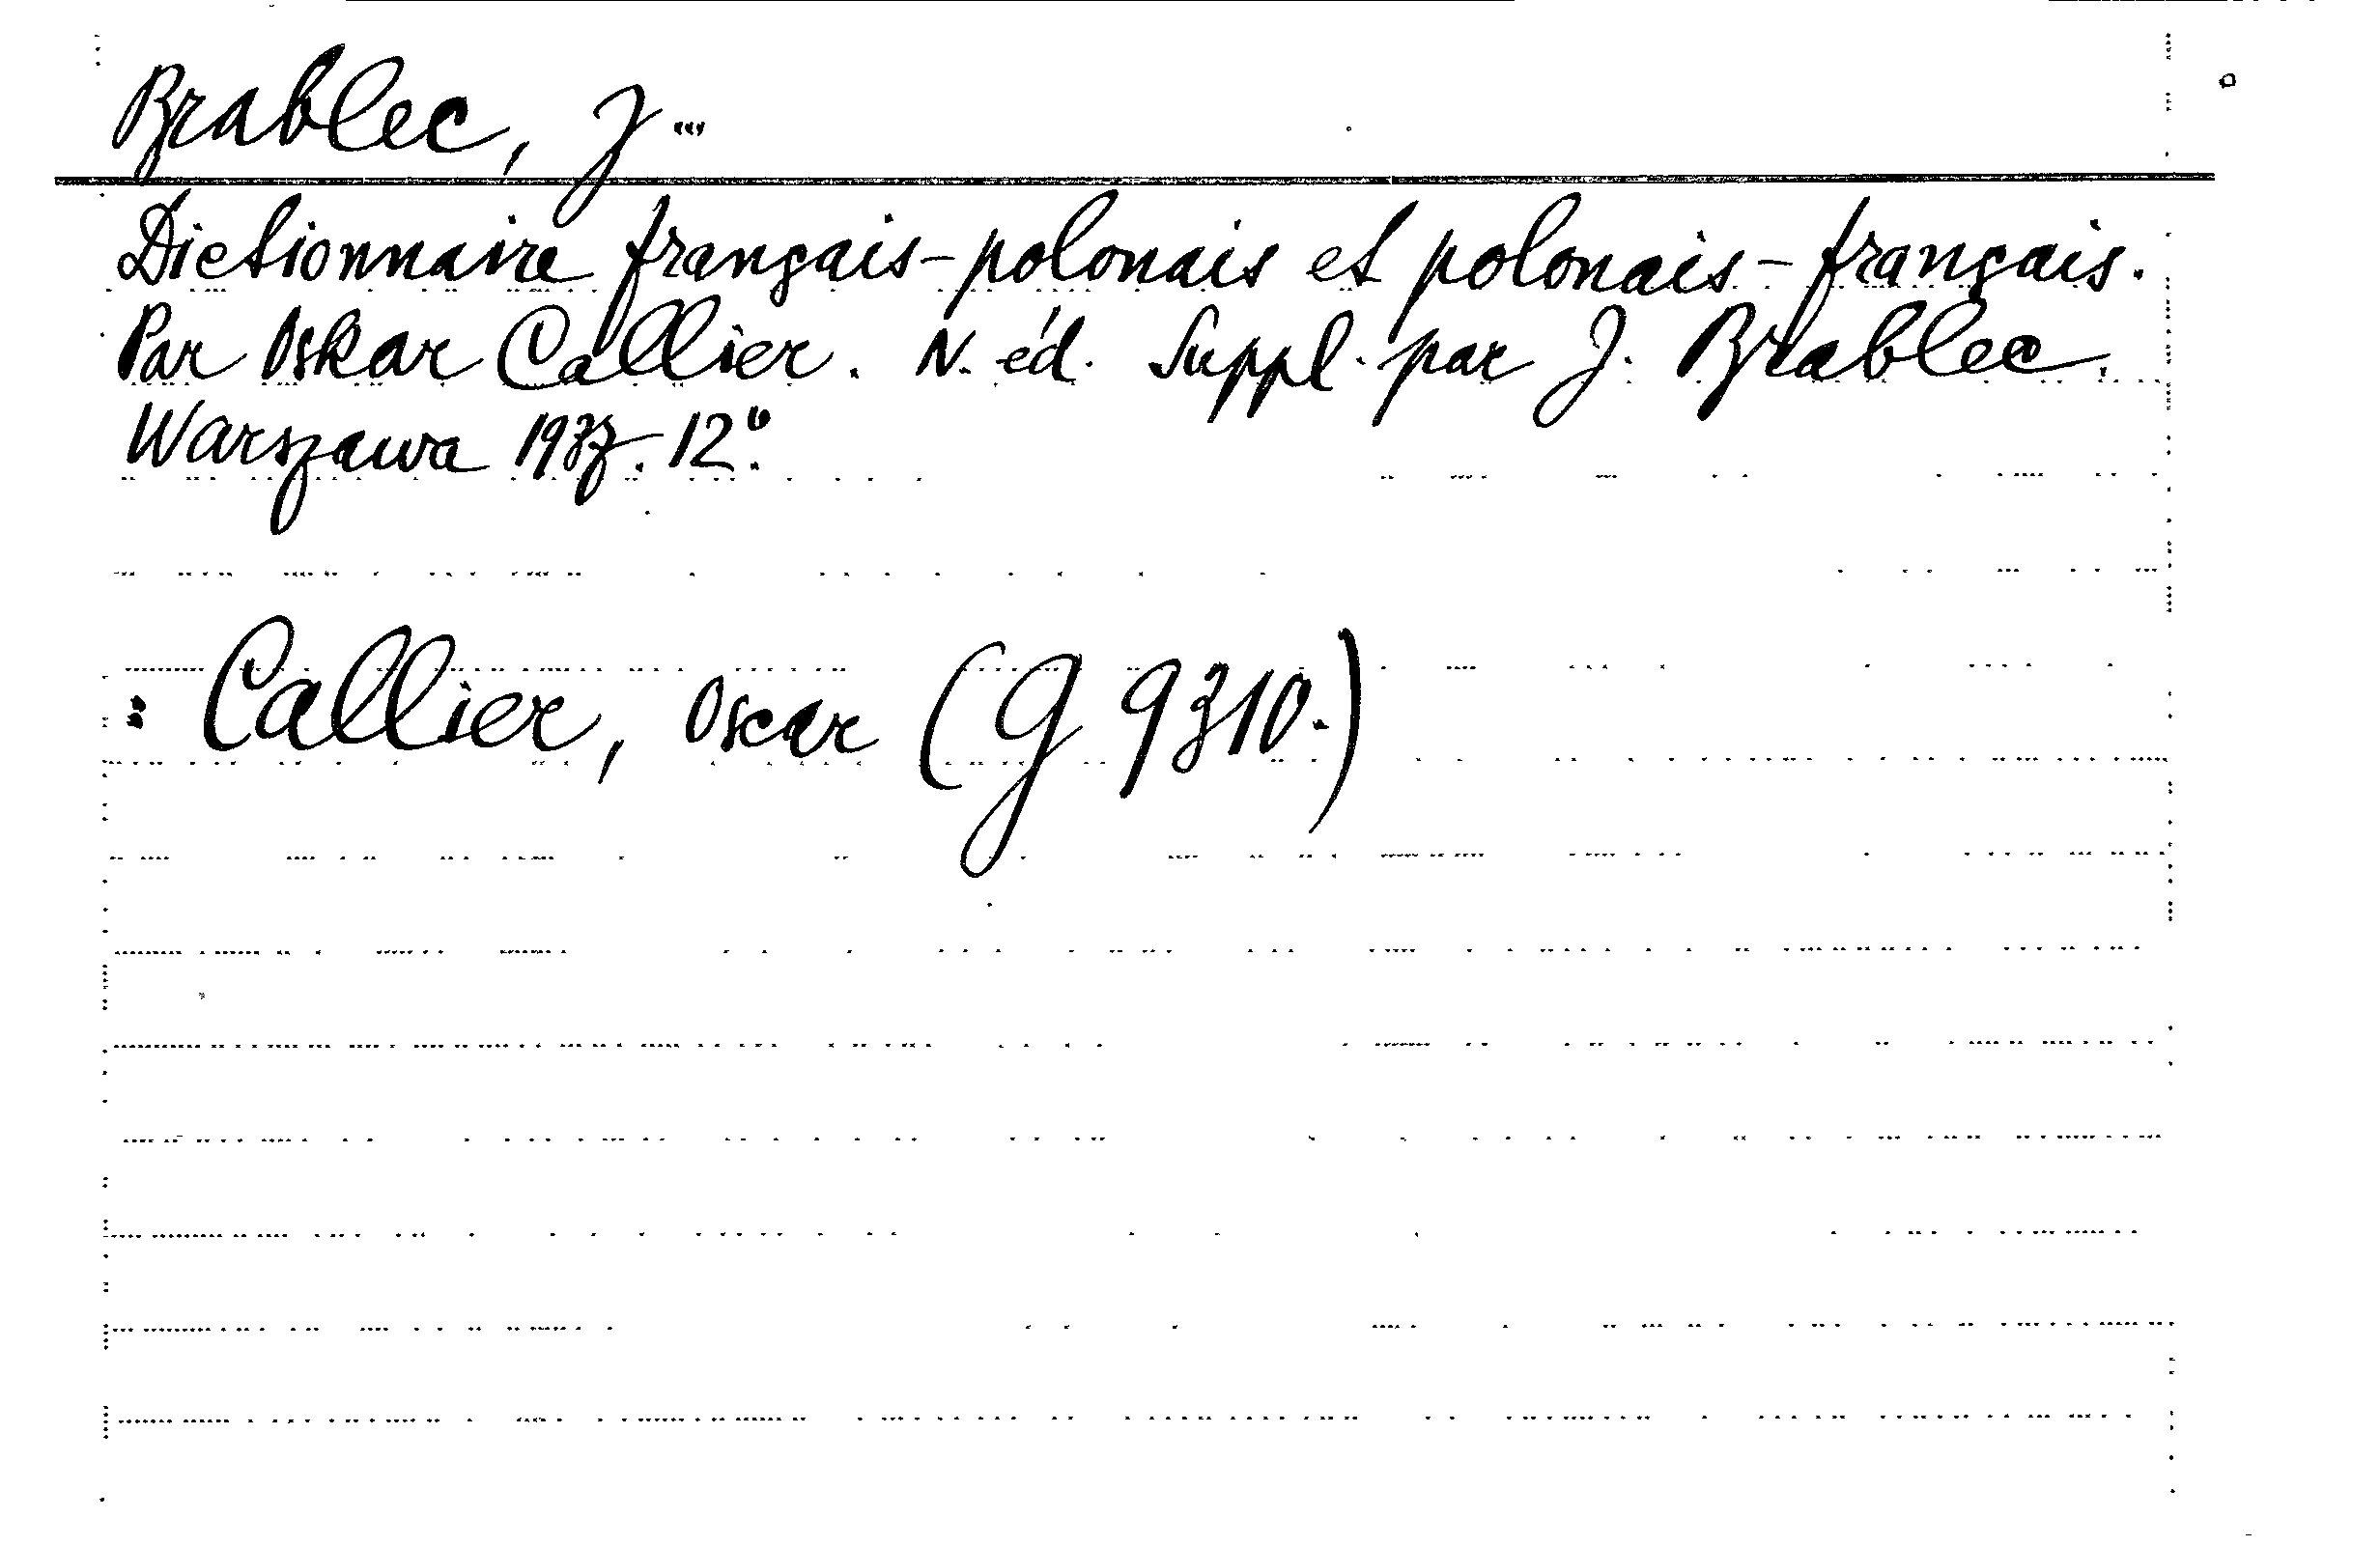 Brablec, J...
Dictionnaire français-polonais et polonais-français.
Par Oskar Callier. N. éd. Suppl. par J. Brablec.
Warszawa 1937. 12°.
: Callier, Oscar (G 9310.)